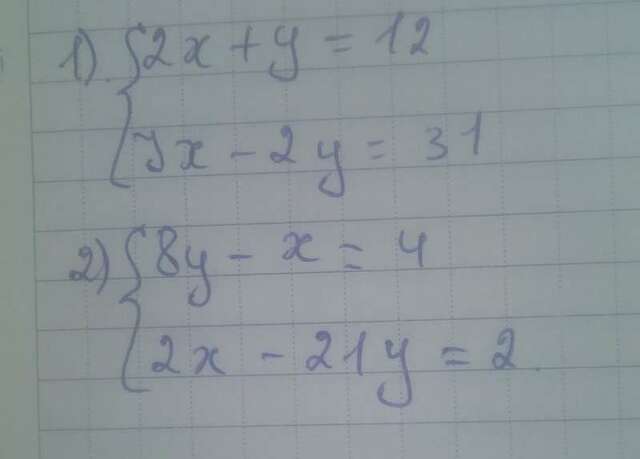 1) { 2x + y = 12
7x - 2y = 31
2) { 8y - x = 4
2x - 21y = 2